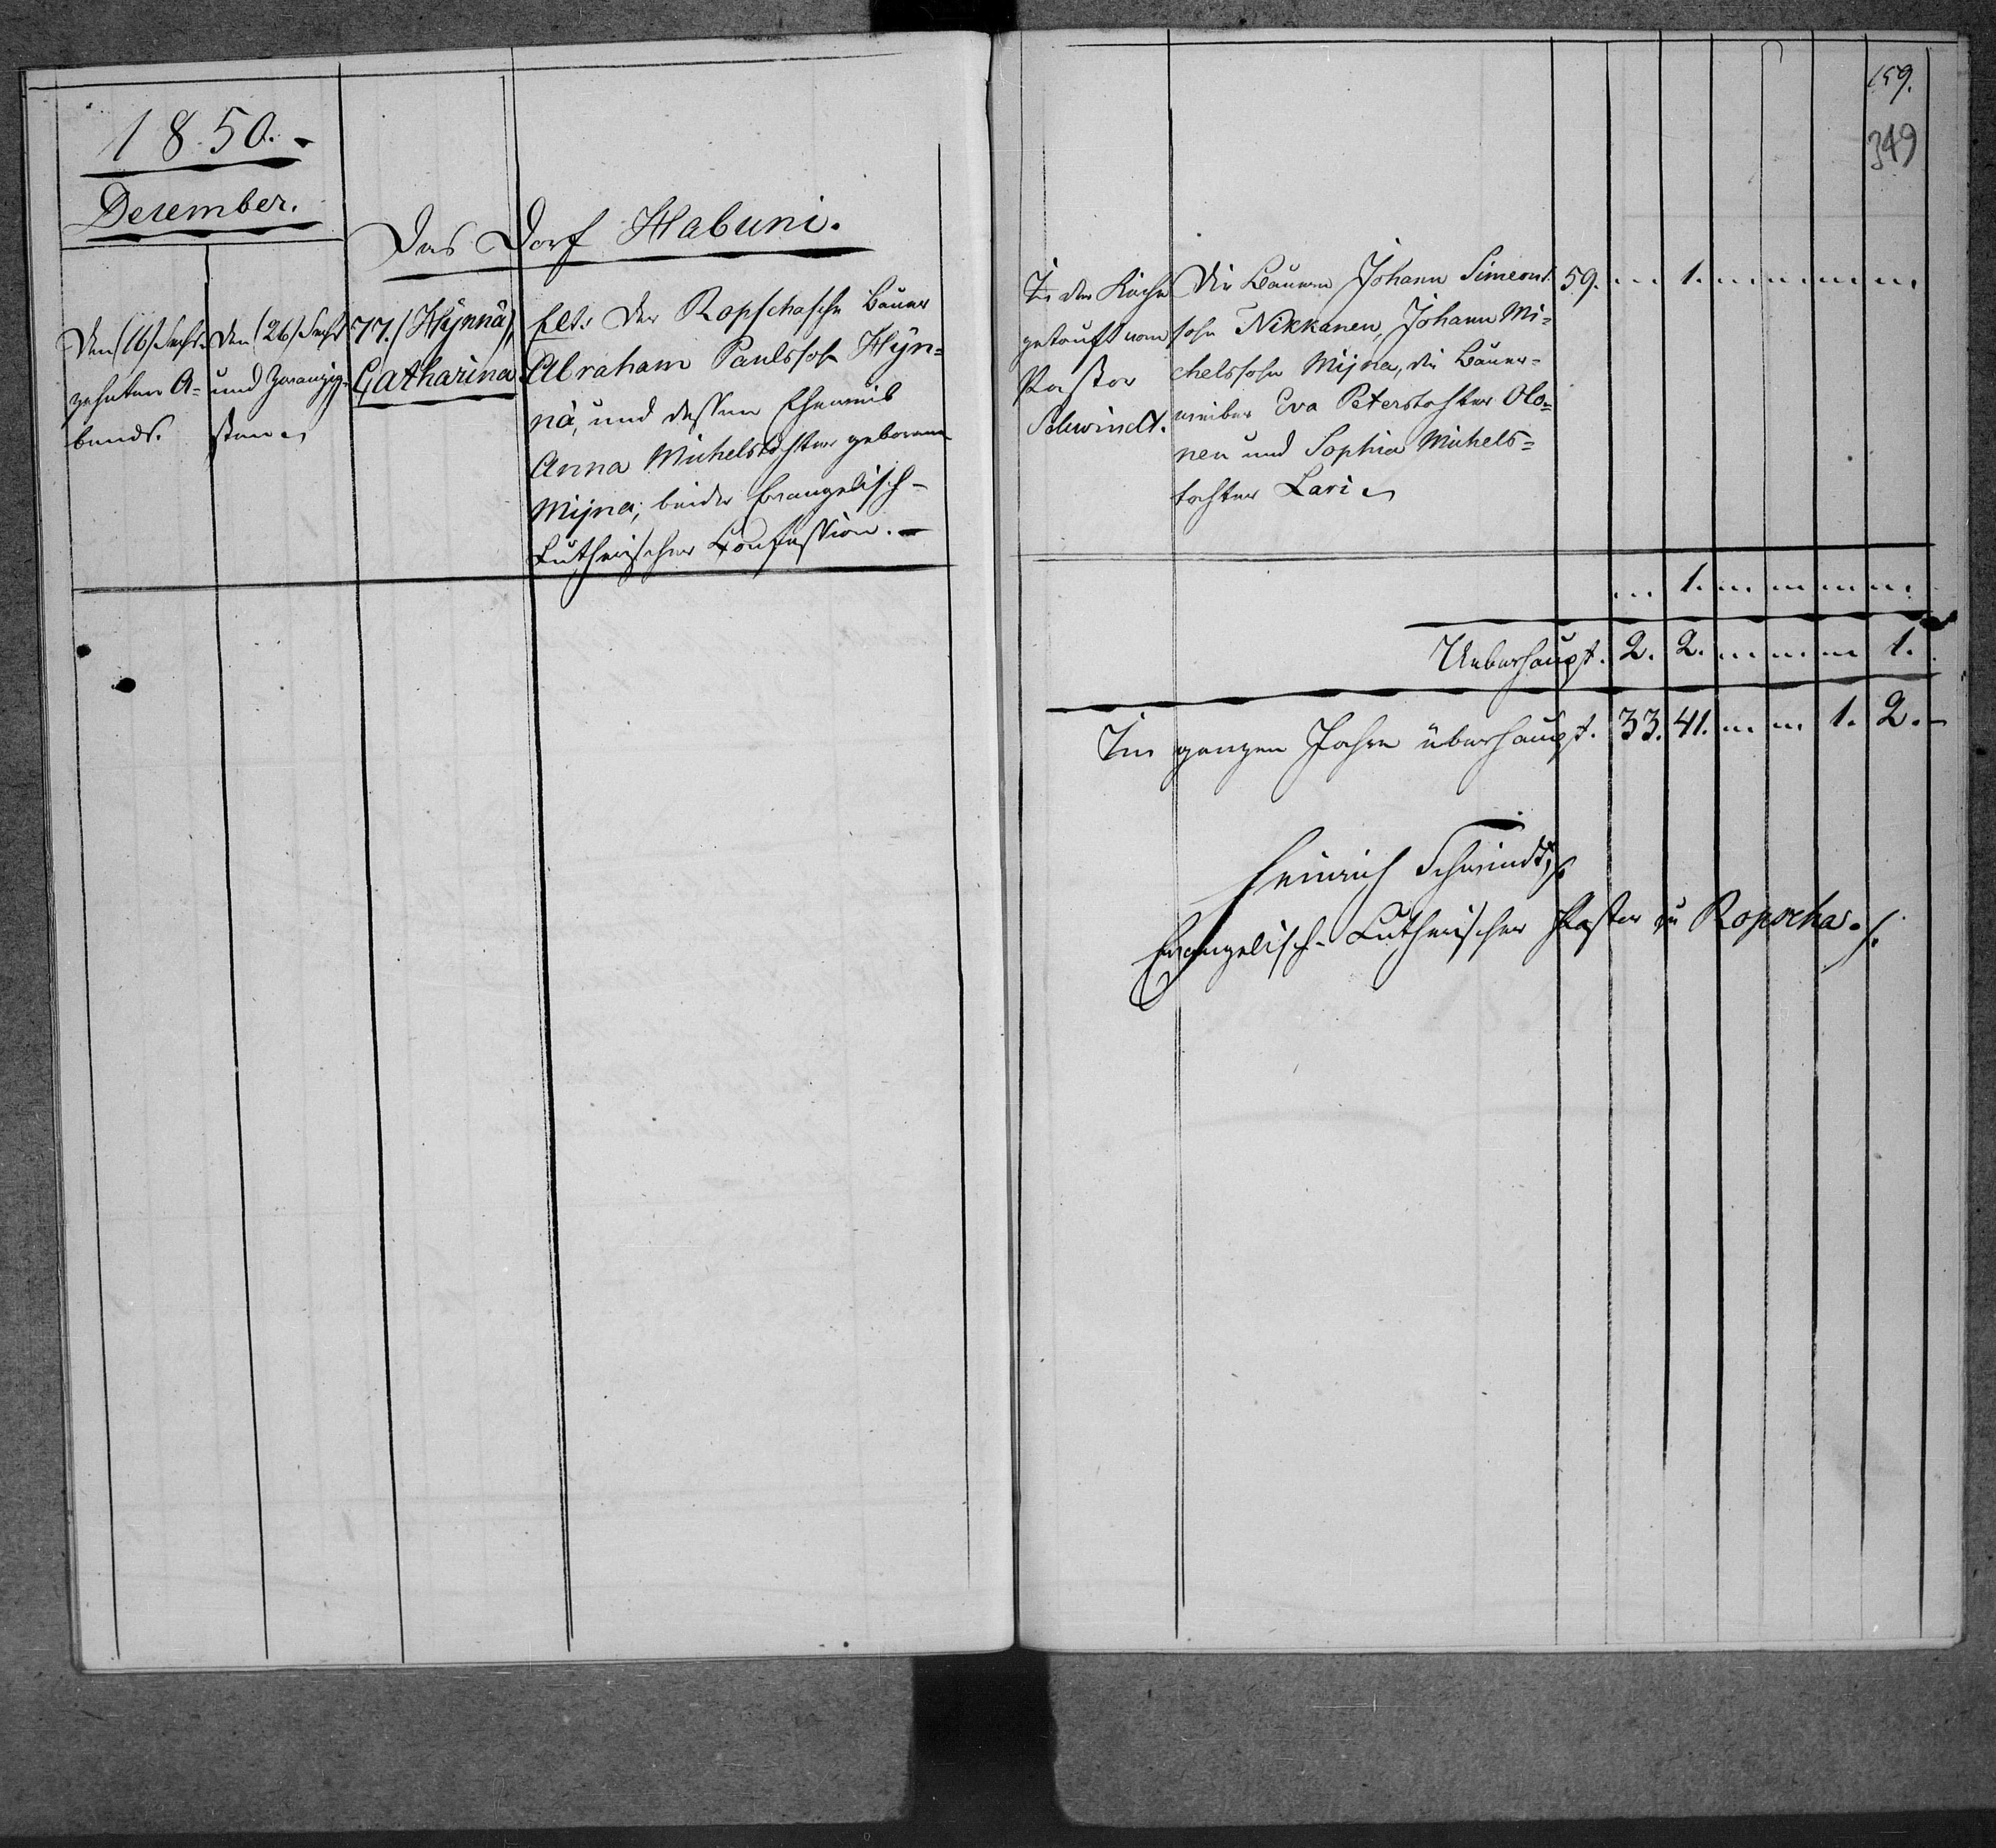 1850.
December.
Das Dorf Habuni.
Den (16) Sechs-
zehnten A-
bends.
Den (26) Sechs
und Zwanzig-
sten
77. (Hÿnnä),
Catharina.
Elt. Der Ropschasche Bauer
Abraham Paulssohn Hÿn-
nä, und dessen Eheweib
Anna Michelstochter geborene
Mijna; beide Evangelisch-
Lutherischer Confession. —
159.
349
In der Kirche
getauft vom
Pastor
Schwindt.
Die Bauern Johann Simeons
sohn Nikkanen, Johann Mi-
chelssohn Mijna, die Bauer-
weiber Eva Peterstochter Olo-
nen und Sophia Michels-
tochter Lari
59. 1.
1.
Ueberhaupt. 2. 2. 1.
Im ganzen Jahre überhaupt. 33. 41. 1. 2. -
Heinrich Schwindt,
Evangelisch-Lutherischer Pastor zu Ropscha.